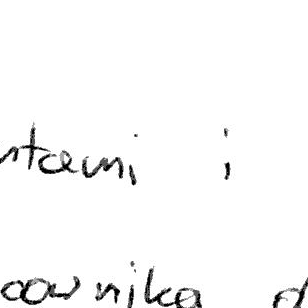 ntami i
cownika d